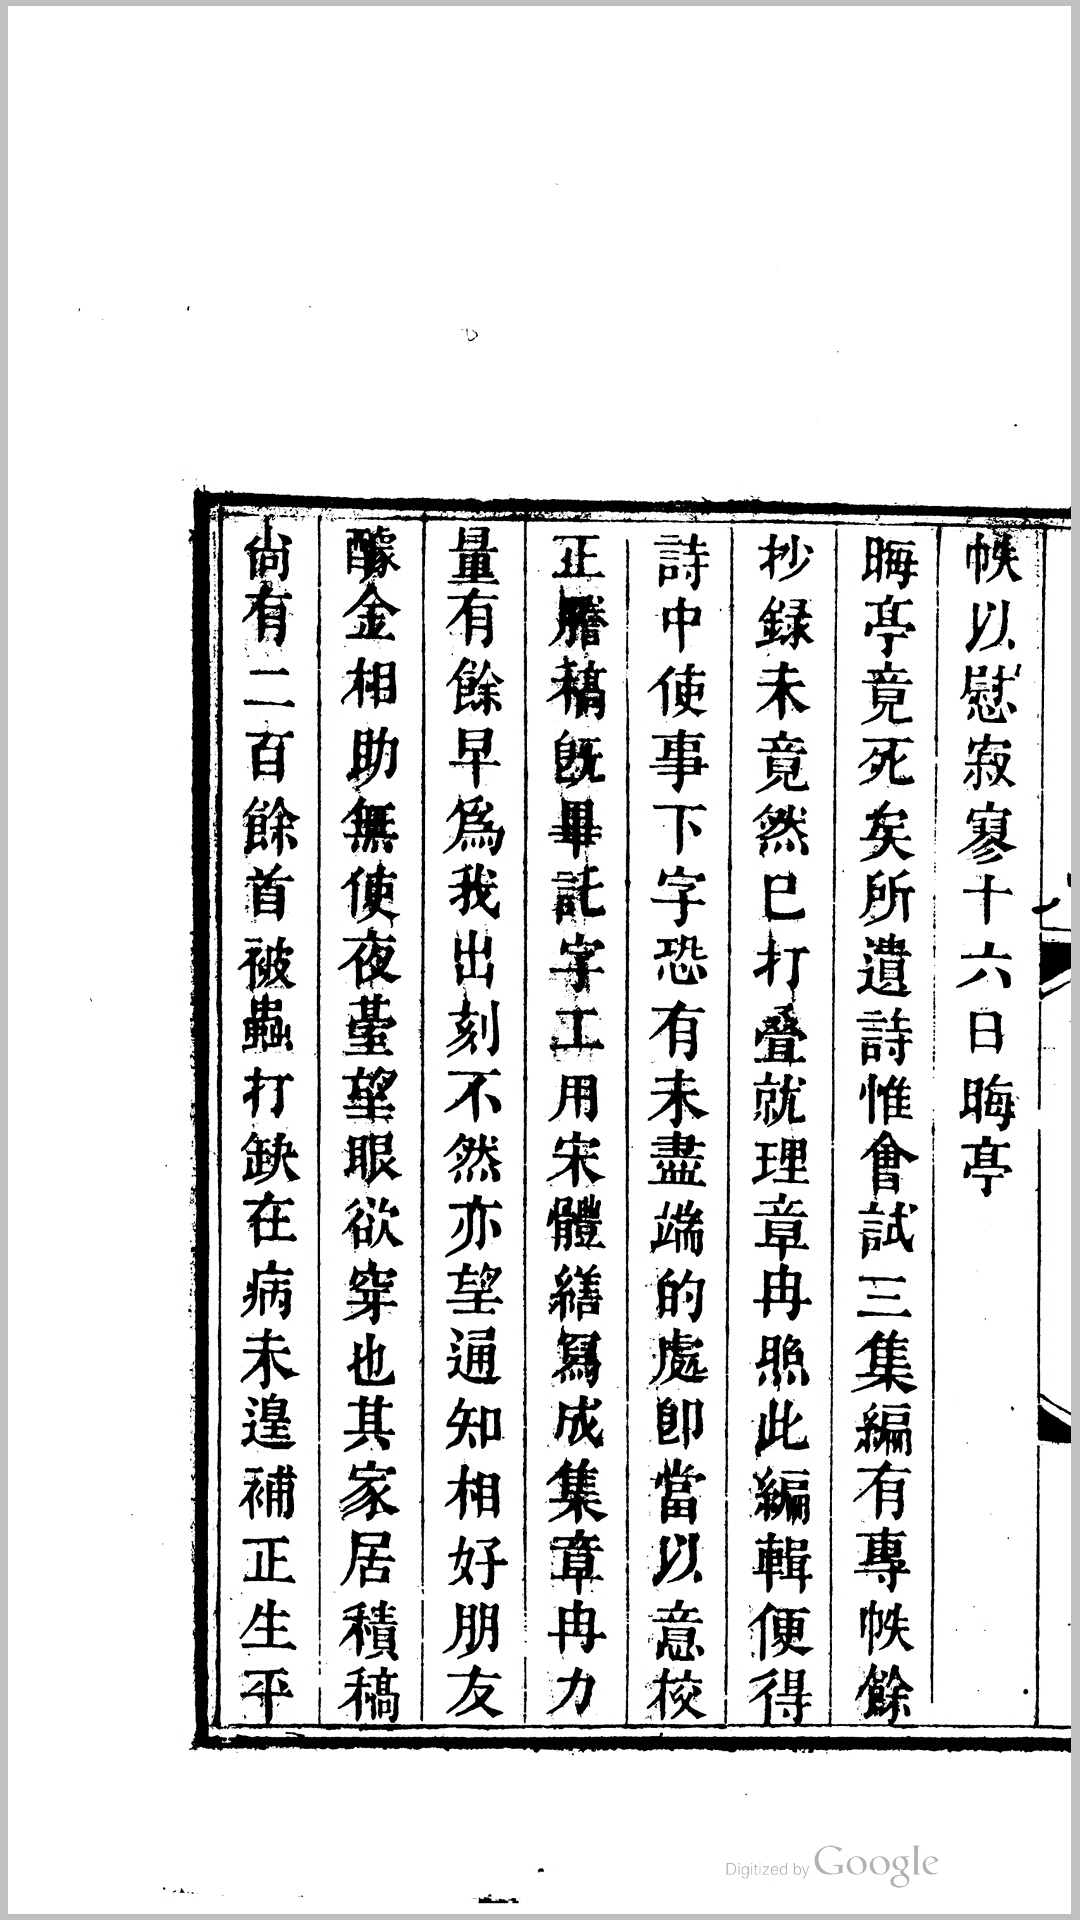 帙以慰寂寥十六日晦亭
晦亭竟死矣所遺詩惟會試三集編有專帙餘
抄録未竟然已打叠就理章冉照此編輯便得
詩中使事下字恐有未盡端的處卽當以意校
正謄稿旣畢託字工用宋體繕寫成集章冉力
量有餘早爲我出刻不然亦望通知相好朋友
醵金相助無使夜臺望眼欲穿也其家居積稿
尙有二百餘首被蟲打缺在病未遑補正生平
Digitized by Google